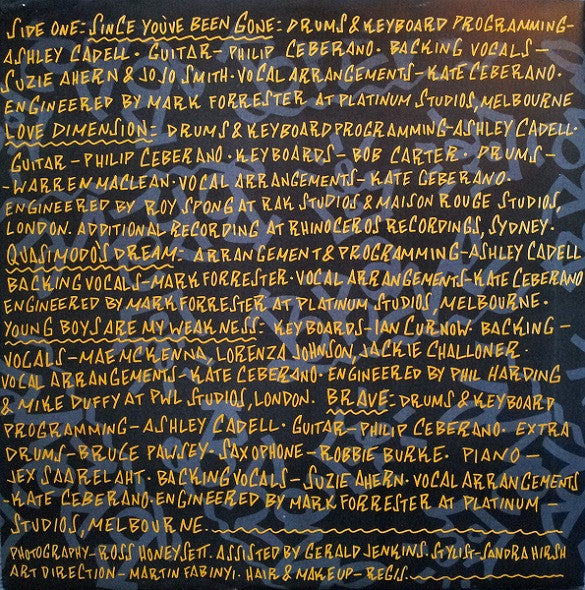 SIDE ONE: SINCE YOU'VE BEEN GONE: DRUMS & KEYBOARD PROGRAMMING-
ASHLEY CADELL · GUITAR - PHILIP CEBERANO · BACKING VOCALS -
SUZIE AHERN & JOJO SMITH · VOCAL ARRANGEMENTS - KATE CEBERANO ·
ENGINEERED BY MARK FORRESTER AT PLATINUM STUDIOS, MELBOURNE
LOVE DIMENSION: DRUMS & KEYBOARD PROGRAMMING - ASHLEY CADELL ·
GUITAR - PHILIP CEBERANO · KEYBOARDS - BOB CARTER · DRUMS -
- WARREN MACLEAN · VOCAL ARRANGEMENTS - KATE CEBERANO ·
ENGINEERED BY ROY SPONG AT RAK STUDIOS & MAISON ROUGE STUDIOS,
LONDON. ADDITIONAL RECORDING AT RHINOCEROS RECORDINGS, SYDNEY ·
QUASIMODO'S DREAM: ARRANGEMENT & PROGRAMMING - ASHLEY CADELL
BACKING VOCALS - MARK FORRESTER · VOCAL ARRANGEMENTS - KATE CEBERANO
ENGINEERED BY MARK FORRESTER AT PLATINUM STUDIOS, MELBOURNE ·
YOUNG BOYS ARE MY WEAKNESS: KEYBOARDS - IAN CURNOW. BACKING -
VOCALS - MAE MCKENNA, LORENZA JOHNSON, JACKIE CHALLONER ·
VOCAL ARRANGEMENTS - KATE CEBERANO · ENGINEERED BY PHIL HARDING
& MIKE DUFFY AT PWL STUDIOS, LONDON. BRAVE: DRUMS & KEYBOARD
PROGRAMMING - ASHLEY CADELL · GUITAR - PHILIP CEBERANO · EXTRA
DRUMS - BRUCE PAWSEY · SAXOPHONE - ROBBIE BURKE · PIANO -
JEX SAARELAHT · BACKING VOCALS - SUZIE AHERN · VOCAL ARRANGEMENTS
- KATE CEBERANO · ENGINEERED BY MARK FORRESTER AT PLATINUM -
STUDIOS, MELBOURNE...
PHOTOGRAPHY - ROSS HONEYSETT. ASSISTED BY GERALD JENKINS. STYLIST - SANDRA HIRSH
ART DIRECTION - MARTIN FABINYI · HAIR & MAKEUP - REGIS.